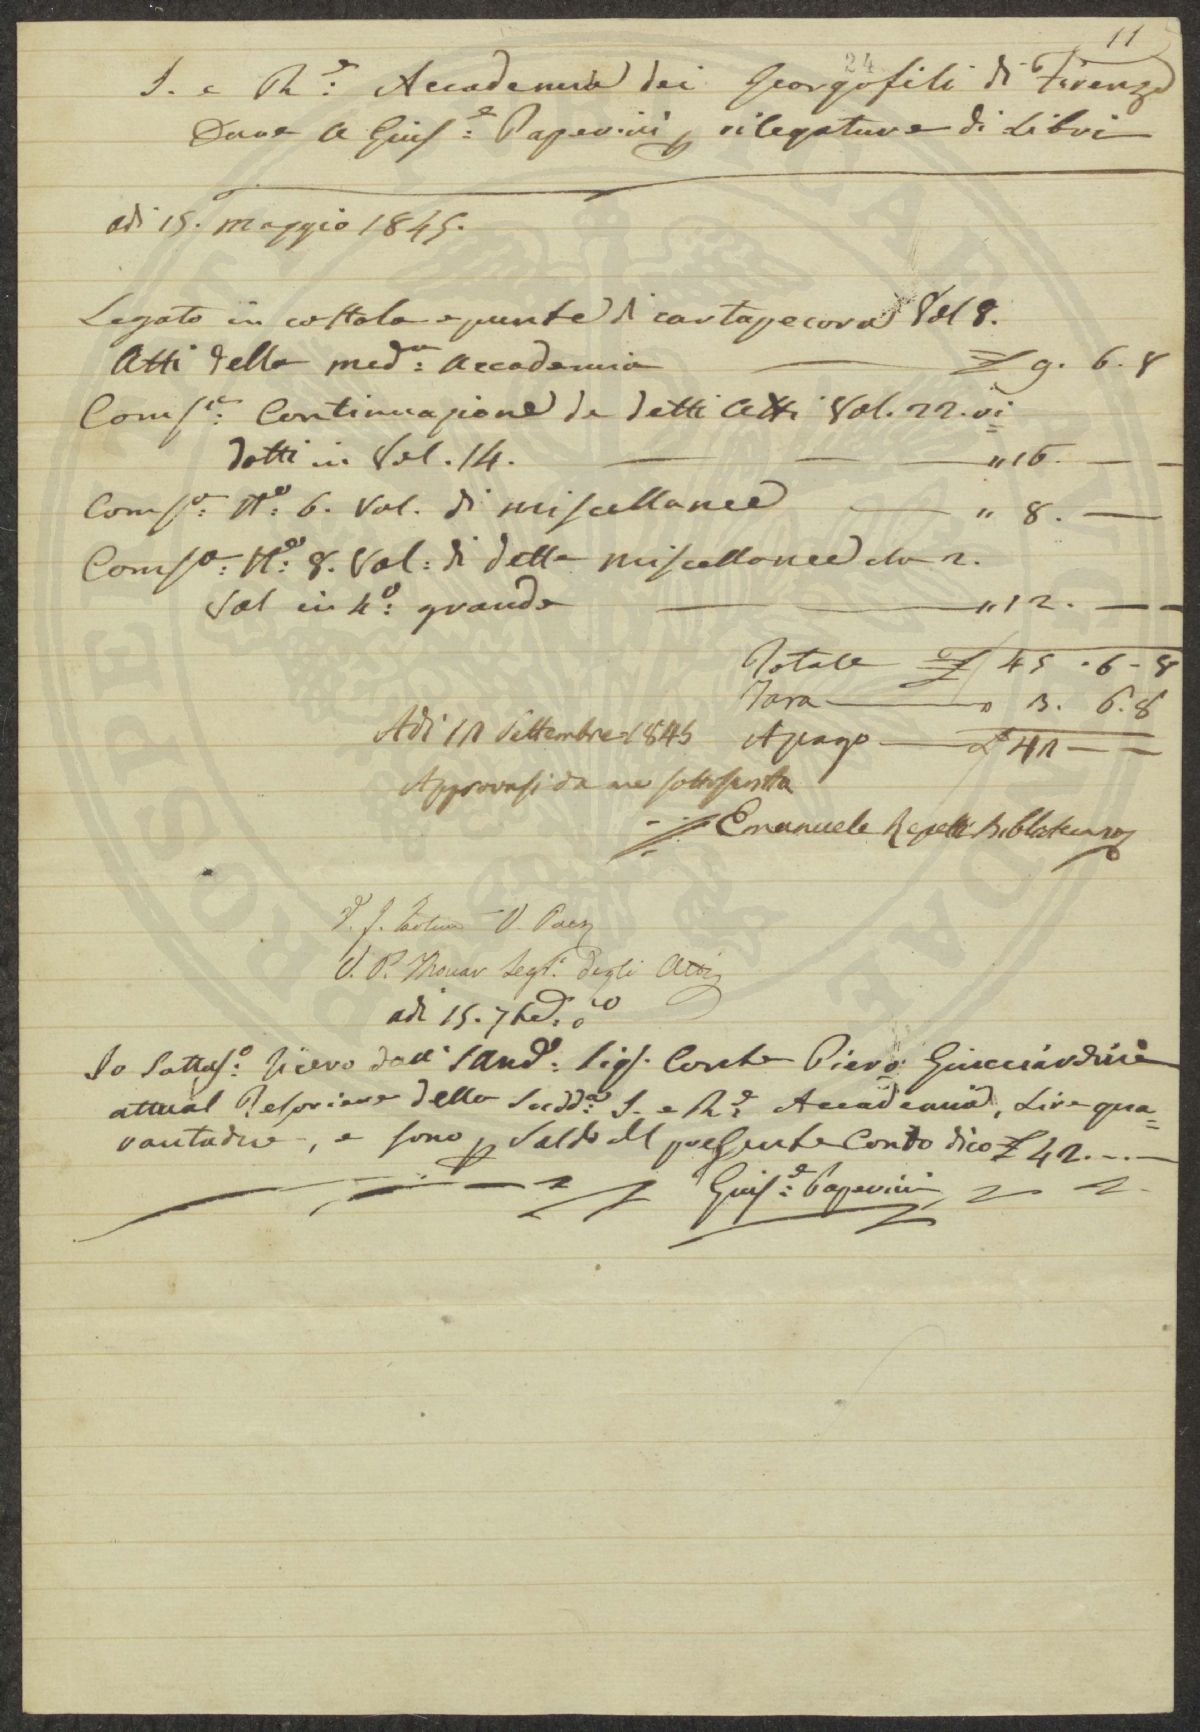 11
24
I. e R.e Accademia dei Georgofili di Firenze
Dare a Gius.e Paperini p rilegature di Libri
adi 15. maggio 1845.
Legato in costola e punte di cartapecora Vol 8.
Atti della med.a Accademia £ 9. 6. 8
Comp.a Continuazione de detti Atti Vol. 22. ri=
dotti in Vol. 14. " 16. — —
Comp.a N.o 6. Vol. di miscellanee " 8. —
Comp.a N.o 8. Vol: di dette miscellanee
Vol in 4.o grande " 12. — —
Totale £ 45 . 6 - 8
Tara " 3. 6. 8
A pago £ 42 — —
Adi 12 Settembre 1845
Approvasi da me sottoscritto
Emanuele Repetti Bibliotecario
V. P. Thouar Seg.o degli Atti
adi 15. 7bre
Io Sottos.o ricevo dall' Sig. Conte Piero Guicciardini
attual Tesoriere della Sudd.a I. e R.e Accademia, Lire qua=
rantadue, e sono p Saldo del presente Conto dico £ 42. — —
Gius.e Paperini
PROSPERITATI PUBLICAE AUGENDAE